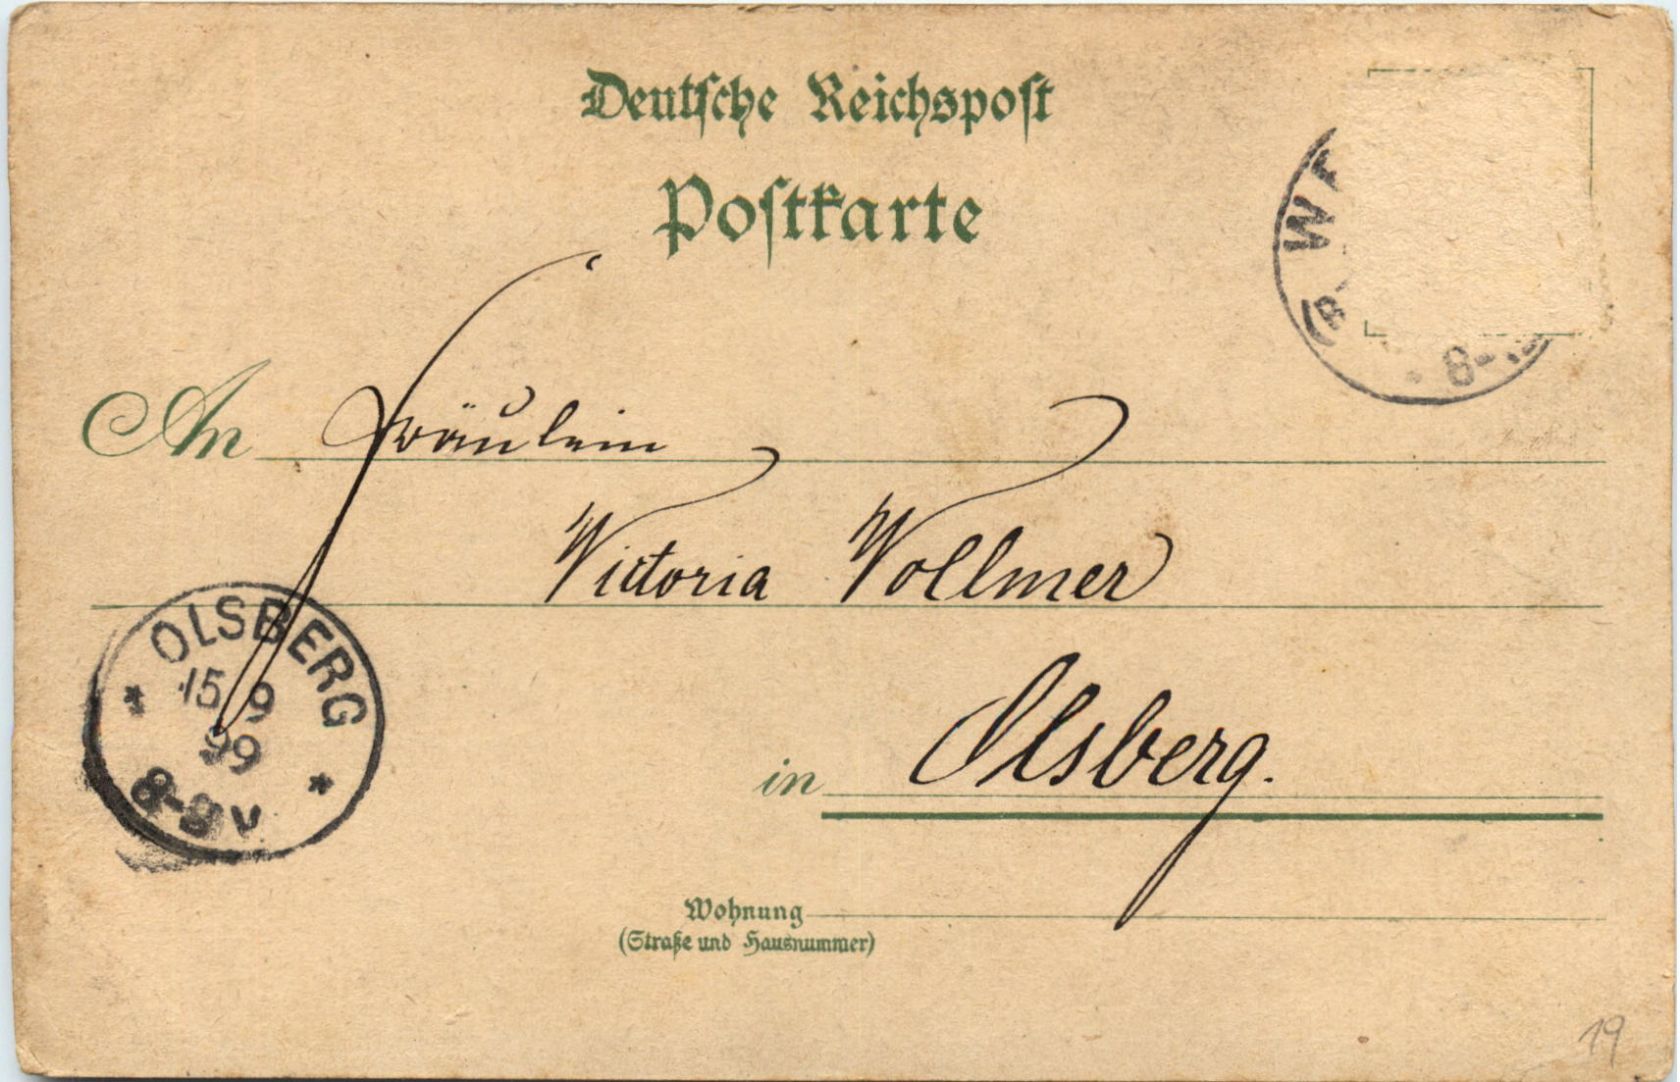 Deutsche Reichspost
Postkarte
An Fräulein
Victoria Vollmer
in Olsberg.
Wohnung
(Straße und Hausnummer)
OLSBERG
15 9
99
8-9V
WE
8-12
19